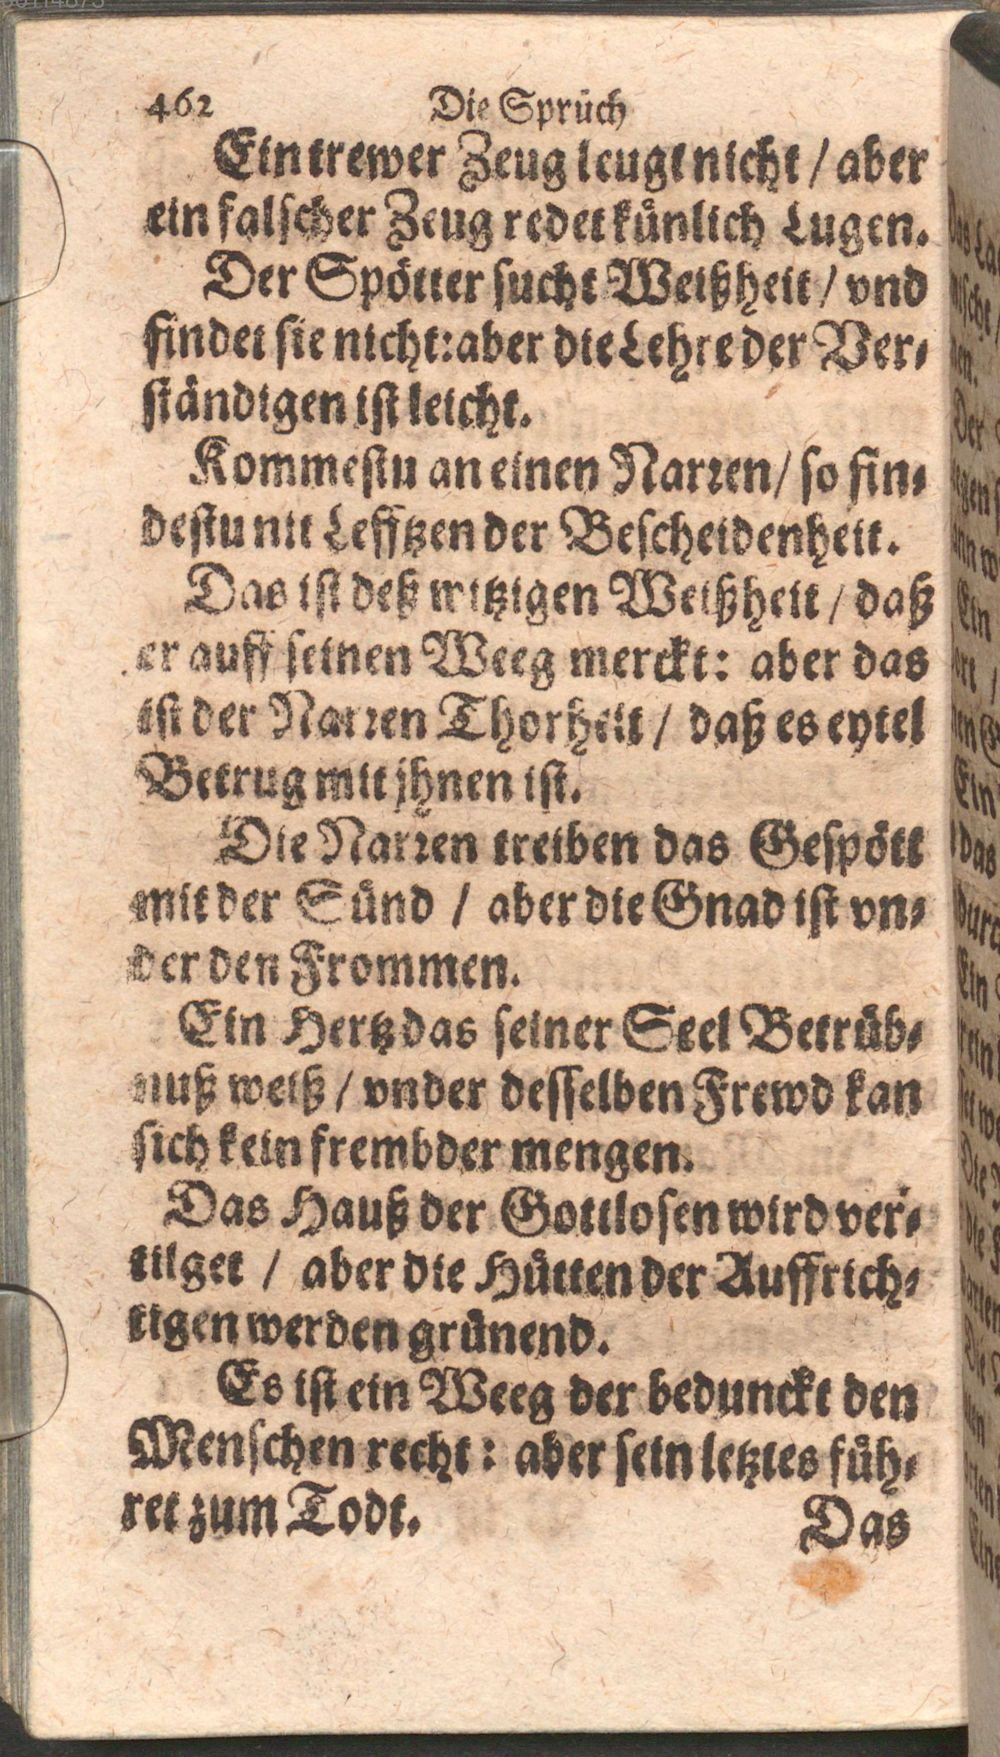 462 Die Sprüch
Ein trewer Zeug leugt nicht / aber
ein falscher Zeug redet künlich Lugen.
Der Spötter sucht Weißheit / vnd
findet sie nicht: aber die Lehre der Ver-
ständigen ist leicht.
Kommestu an einen Narren / so fin-
destu nit Lefftzen der Bescheidenheit.
Das ist deß witzigen Weißheit / daß
er auff seinen Weeg merckt: aber das
ist der Narren Thorheit / daß es eytel
Betrug mit jhnen ist.
Die Narren treiben das Gespött
mit der Sünd / aber die Gnad ist vn-
der den Frommen.
Ein Hertz das seiner Seel Betrüb-
nuß weiß / vnder desselben Frewd kan
sich kein frembder mengen.
Das Hauß der Gottlosen wird ver-
tilget / aber die Hütten der Auffrich-
tigen werden grünend.
Es ist ein Weeg der bedunckt den
Menschen recht: aber sein letztes füh-
ret zum Todt.
Das